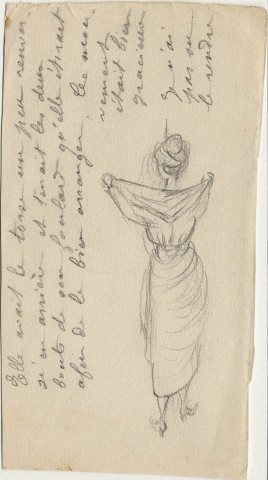 Elle avait le torse un peu renver
sé en arrière et tenait les deux
bouts de son foulard qu'elle étirait
afin de le bien arranger. Le mou-
vement
était bien
gracieux
Je n'ai
pas su
le rendre